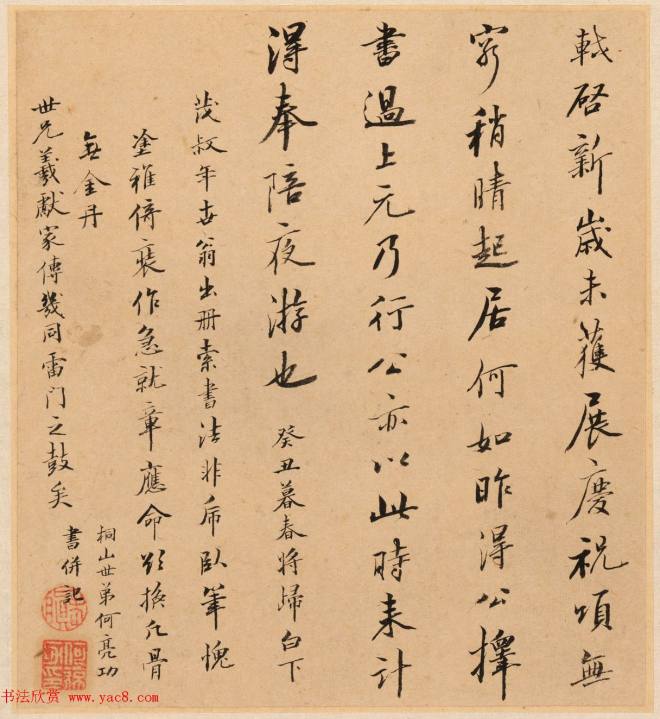 軾啓新歲未獲展慶祝頌無
窮稍晴起居何如昨得公擇
書過上元乃行公亦以此時來計
得奉陪夜游也
癸丑暮春將歸白下
茂叔年世翁出册索書法非
臥筆愧
塗雅倚裝作急就章應命欲換凡骨
無金丹
世兄羲獻家傳幾同雷门之鼓矣
桐山世弟何亮功
書併記
书法欣赏 www.yac8.com